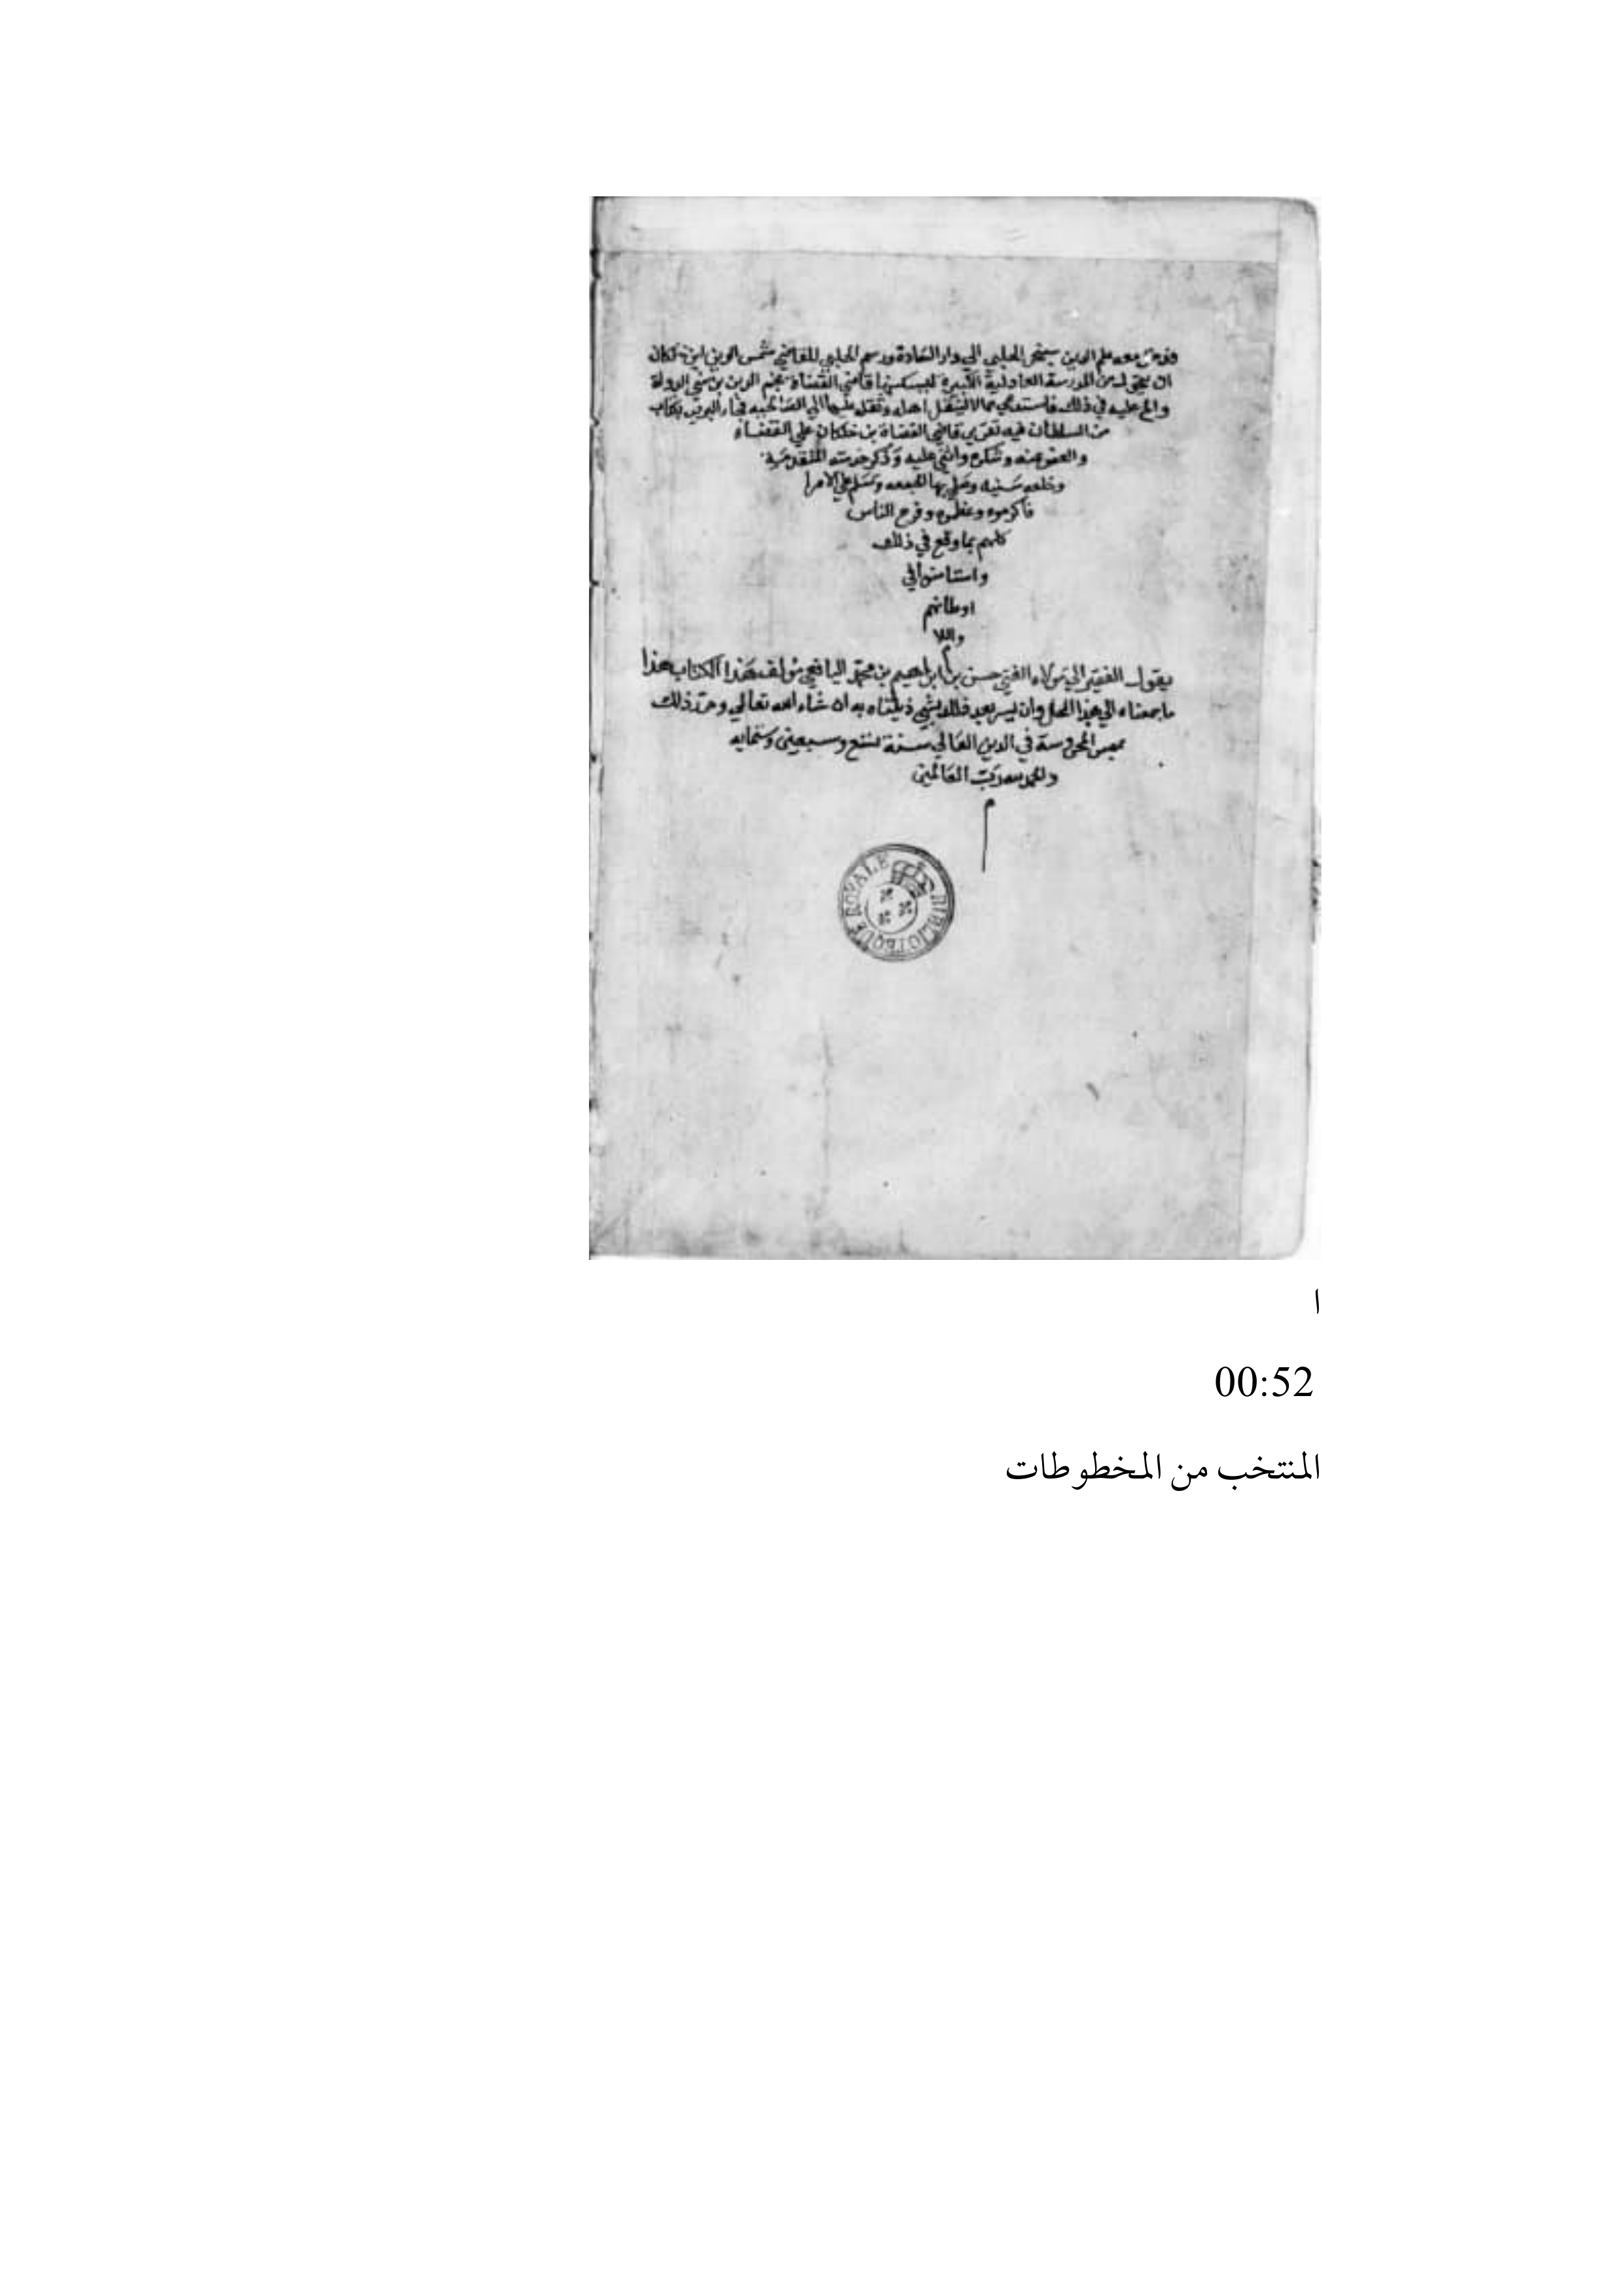 علم الدين سنجر الحلبي الي دار السعادة ورسم الحلبي للقاضي شمس الدين ابن خلكان
ان يتحول من المدرسة العادلية الكبيرة ليسكنها قاضي القضاة نجم الدين بن سني الدولة
والح عليه في ذلك فاستدعي جمالا لينقل اهله وثقله عليها الي الصالحيه فجاء البريد بكتاب
من السلطان فيه تقرير قاضي القضاة بن خلكان علي القضاء
والعفو عنه وشكره واثني عليه وذكر خدمته المتقدمة
وخلعه سنيه وصلي بها الجمعه وسلم علي الامرا
فاكرموه وعظموه وفرح الناس
كلهم بما وقع في ذلك
في
اوطانهم
يقول الفقير الي مولاه الغني حسن بن ابراهيم بن محمد اليافعي مولف هذا الكتاب هذا
ما جمعناه الي هذا المحل وان بعد ذلك بشي ذيلناه به ان شاء الله تعالي وحرر ذلك
المحروسة في العالي سنة تسع وسبعين وستمايه
والحمد لله رب العالمين
م
BIBLIOTEQUE ROYALE
ا
00:52
المنتخب من المخطوطات